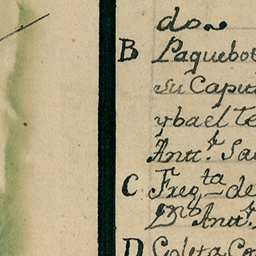 do~
B Paquebot
su Capit
y bael Te
Antt.r Sa
C Freg.ta de
D.n Antt.
D Goleta Co